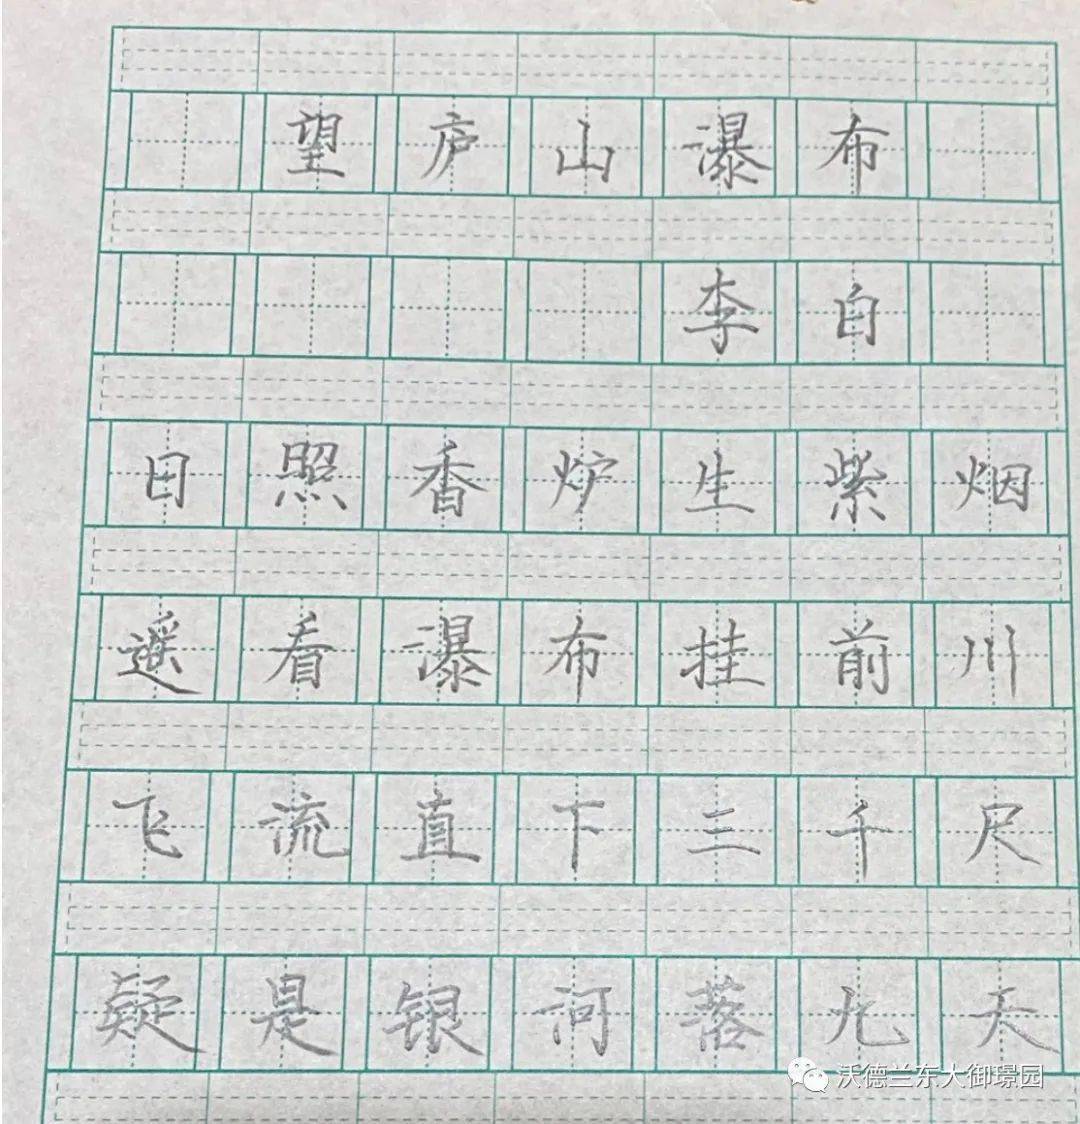 望庐山瀑布
李白
日照香炉生紫烟
遥看瀑布挂前川
飞流直下三千尺
疑是银河落九天
沃德兰东大御璟园